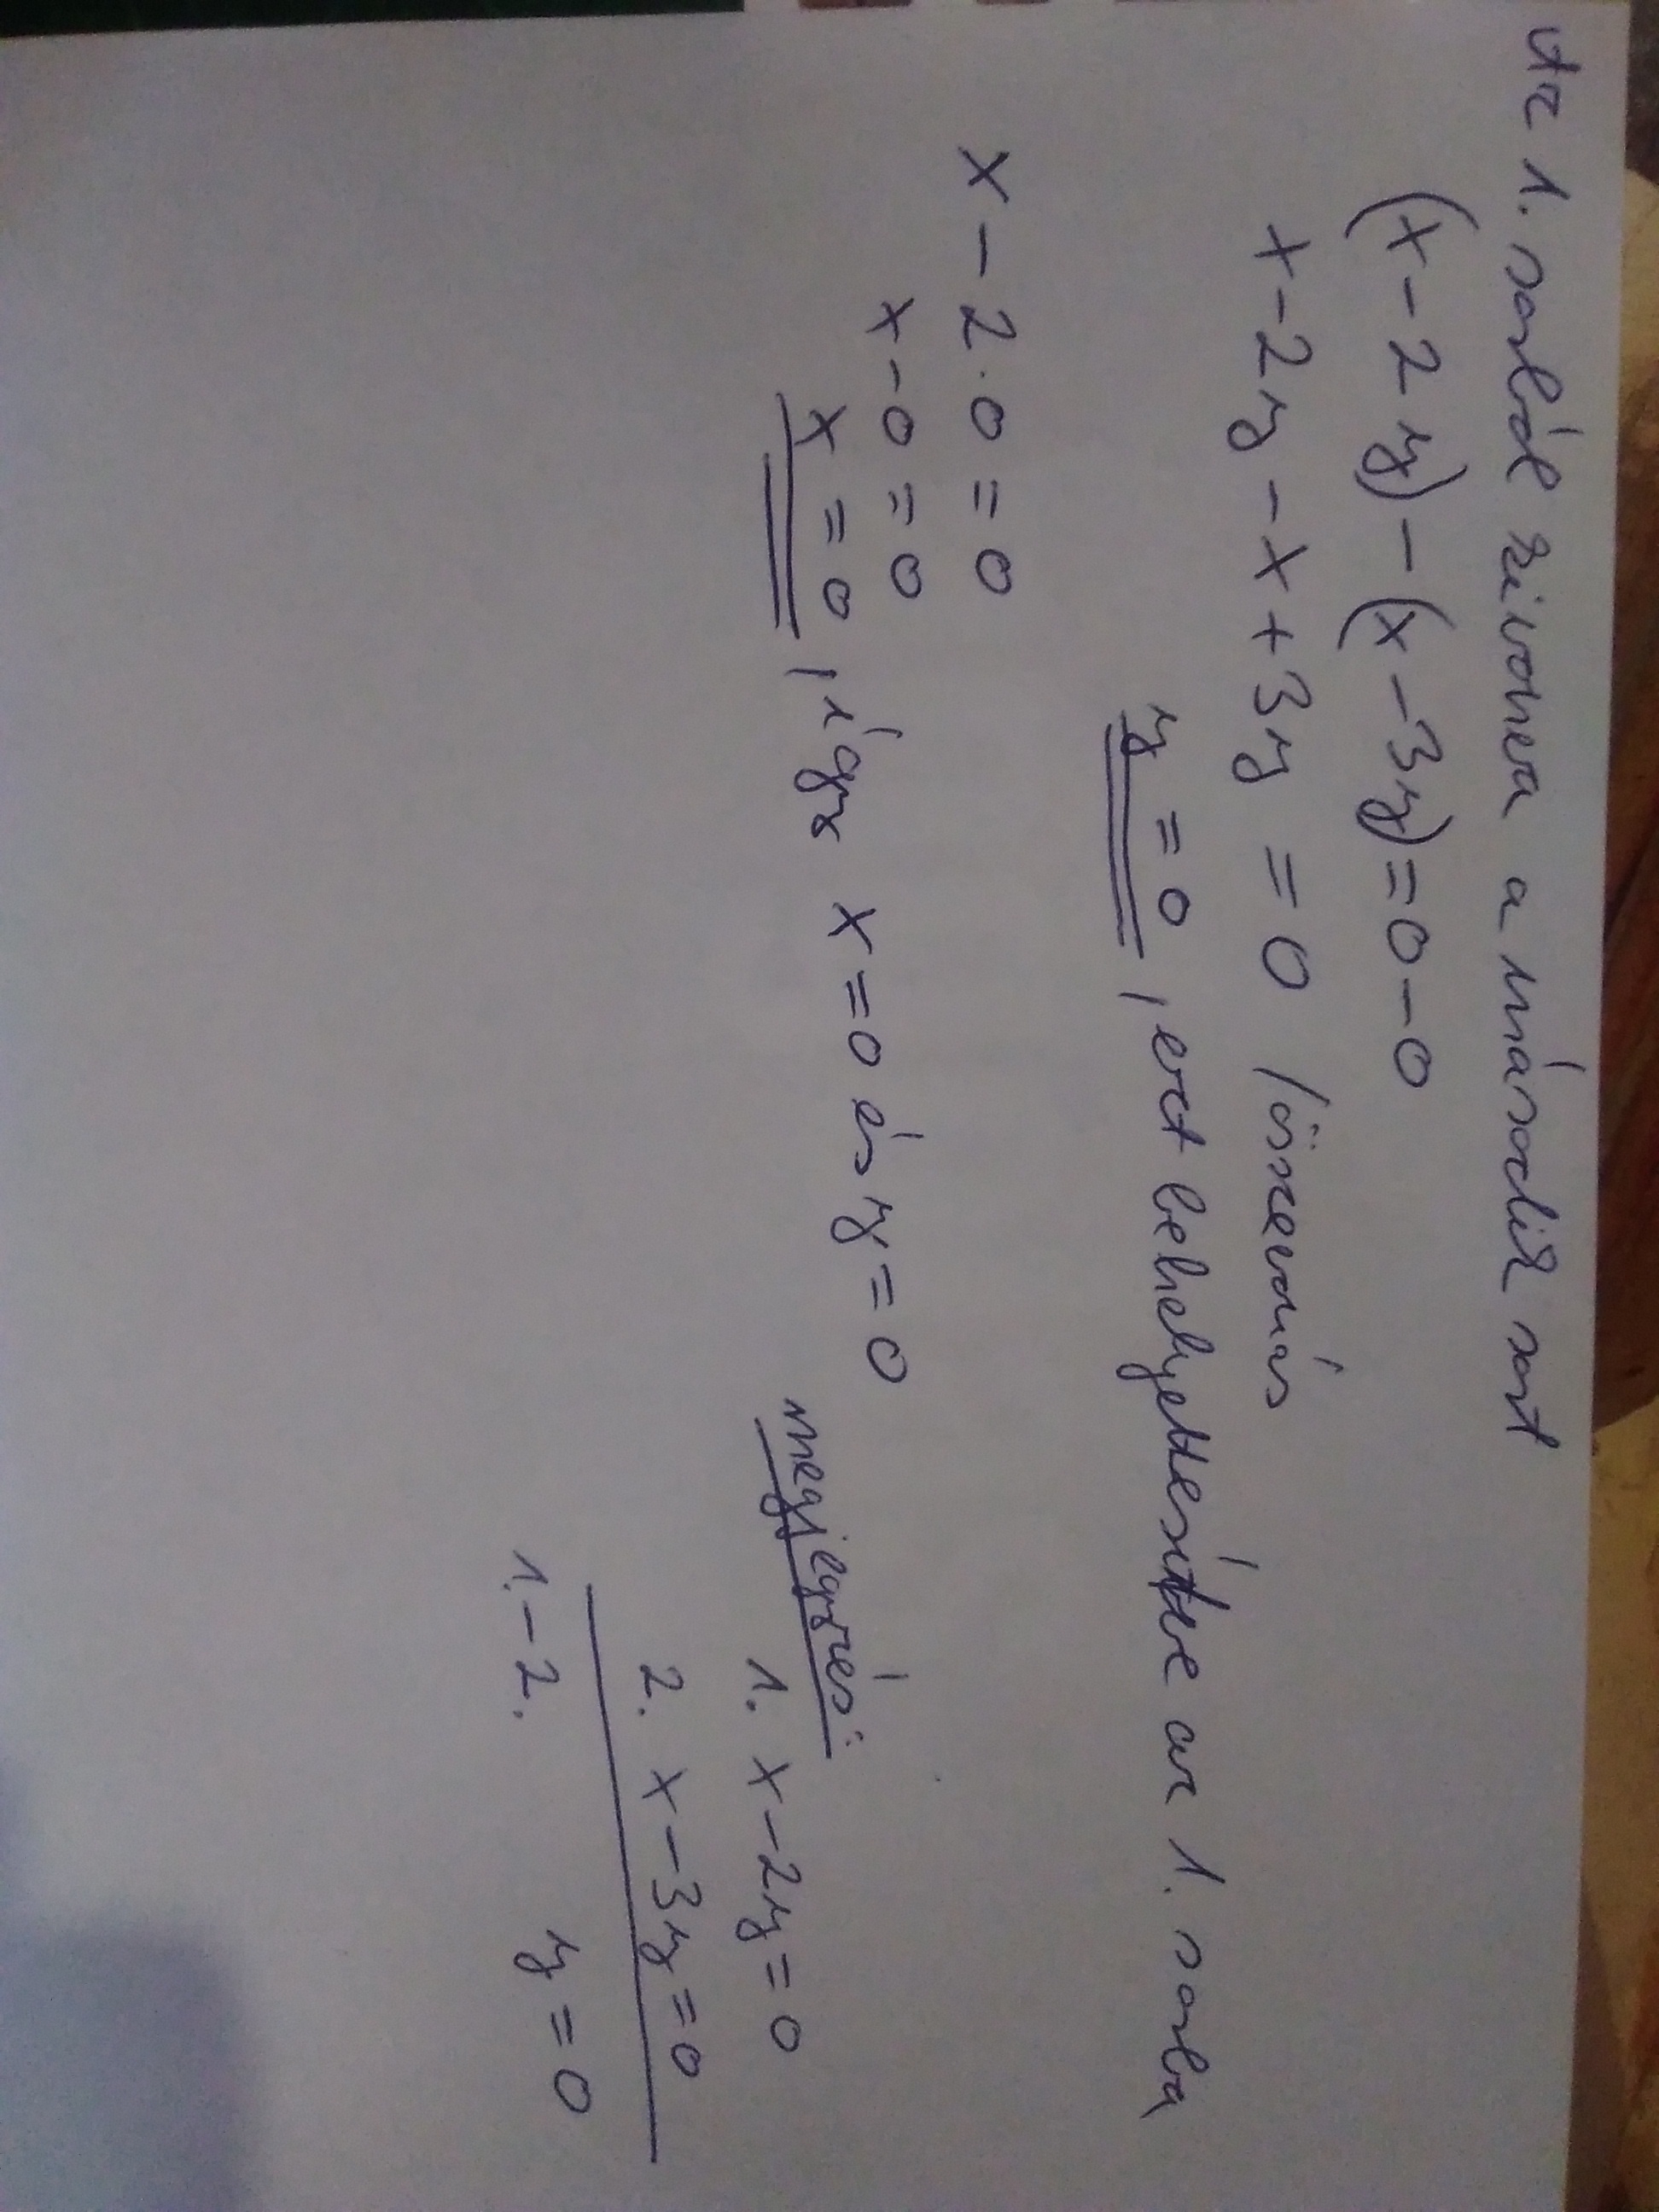 Az 1. sorból kivonva a második sort
(x-2y)-(x-3y)=0-0
x-2y-x+3y=0 /összevonás
y=0, ezt behelyettesítve az 1. sorba
x-2·0=0
x-0=0
x=0, így x=0 és y=0
megjegyzés:
1. x-2y=0
2. x-3y=0
1.-2. y=0